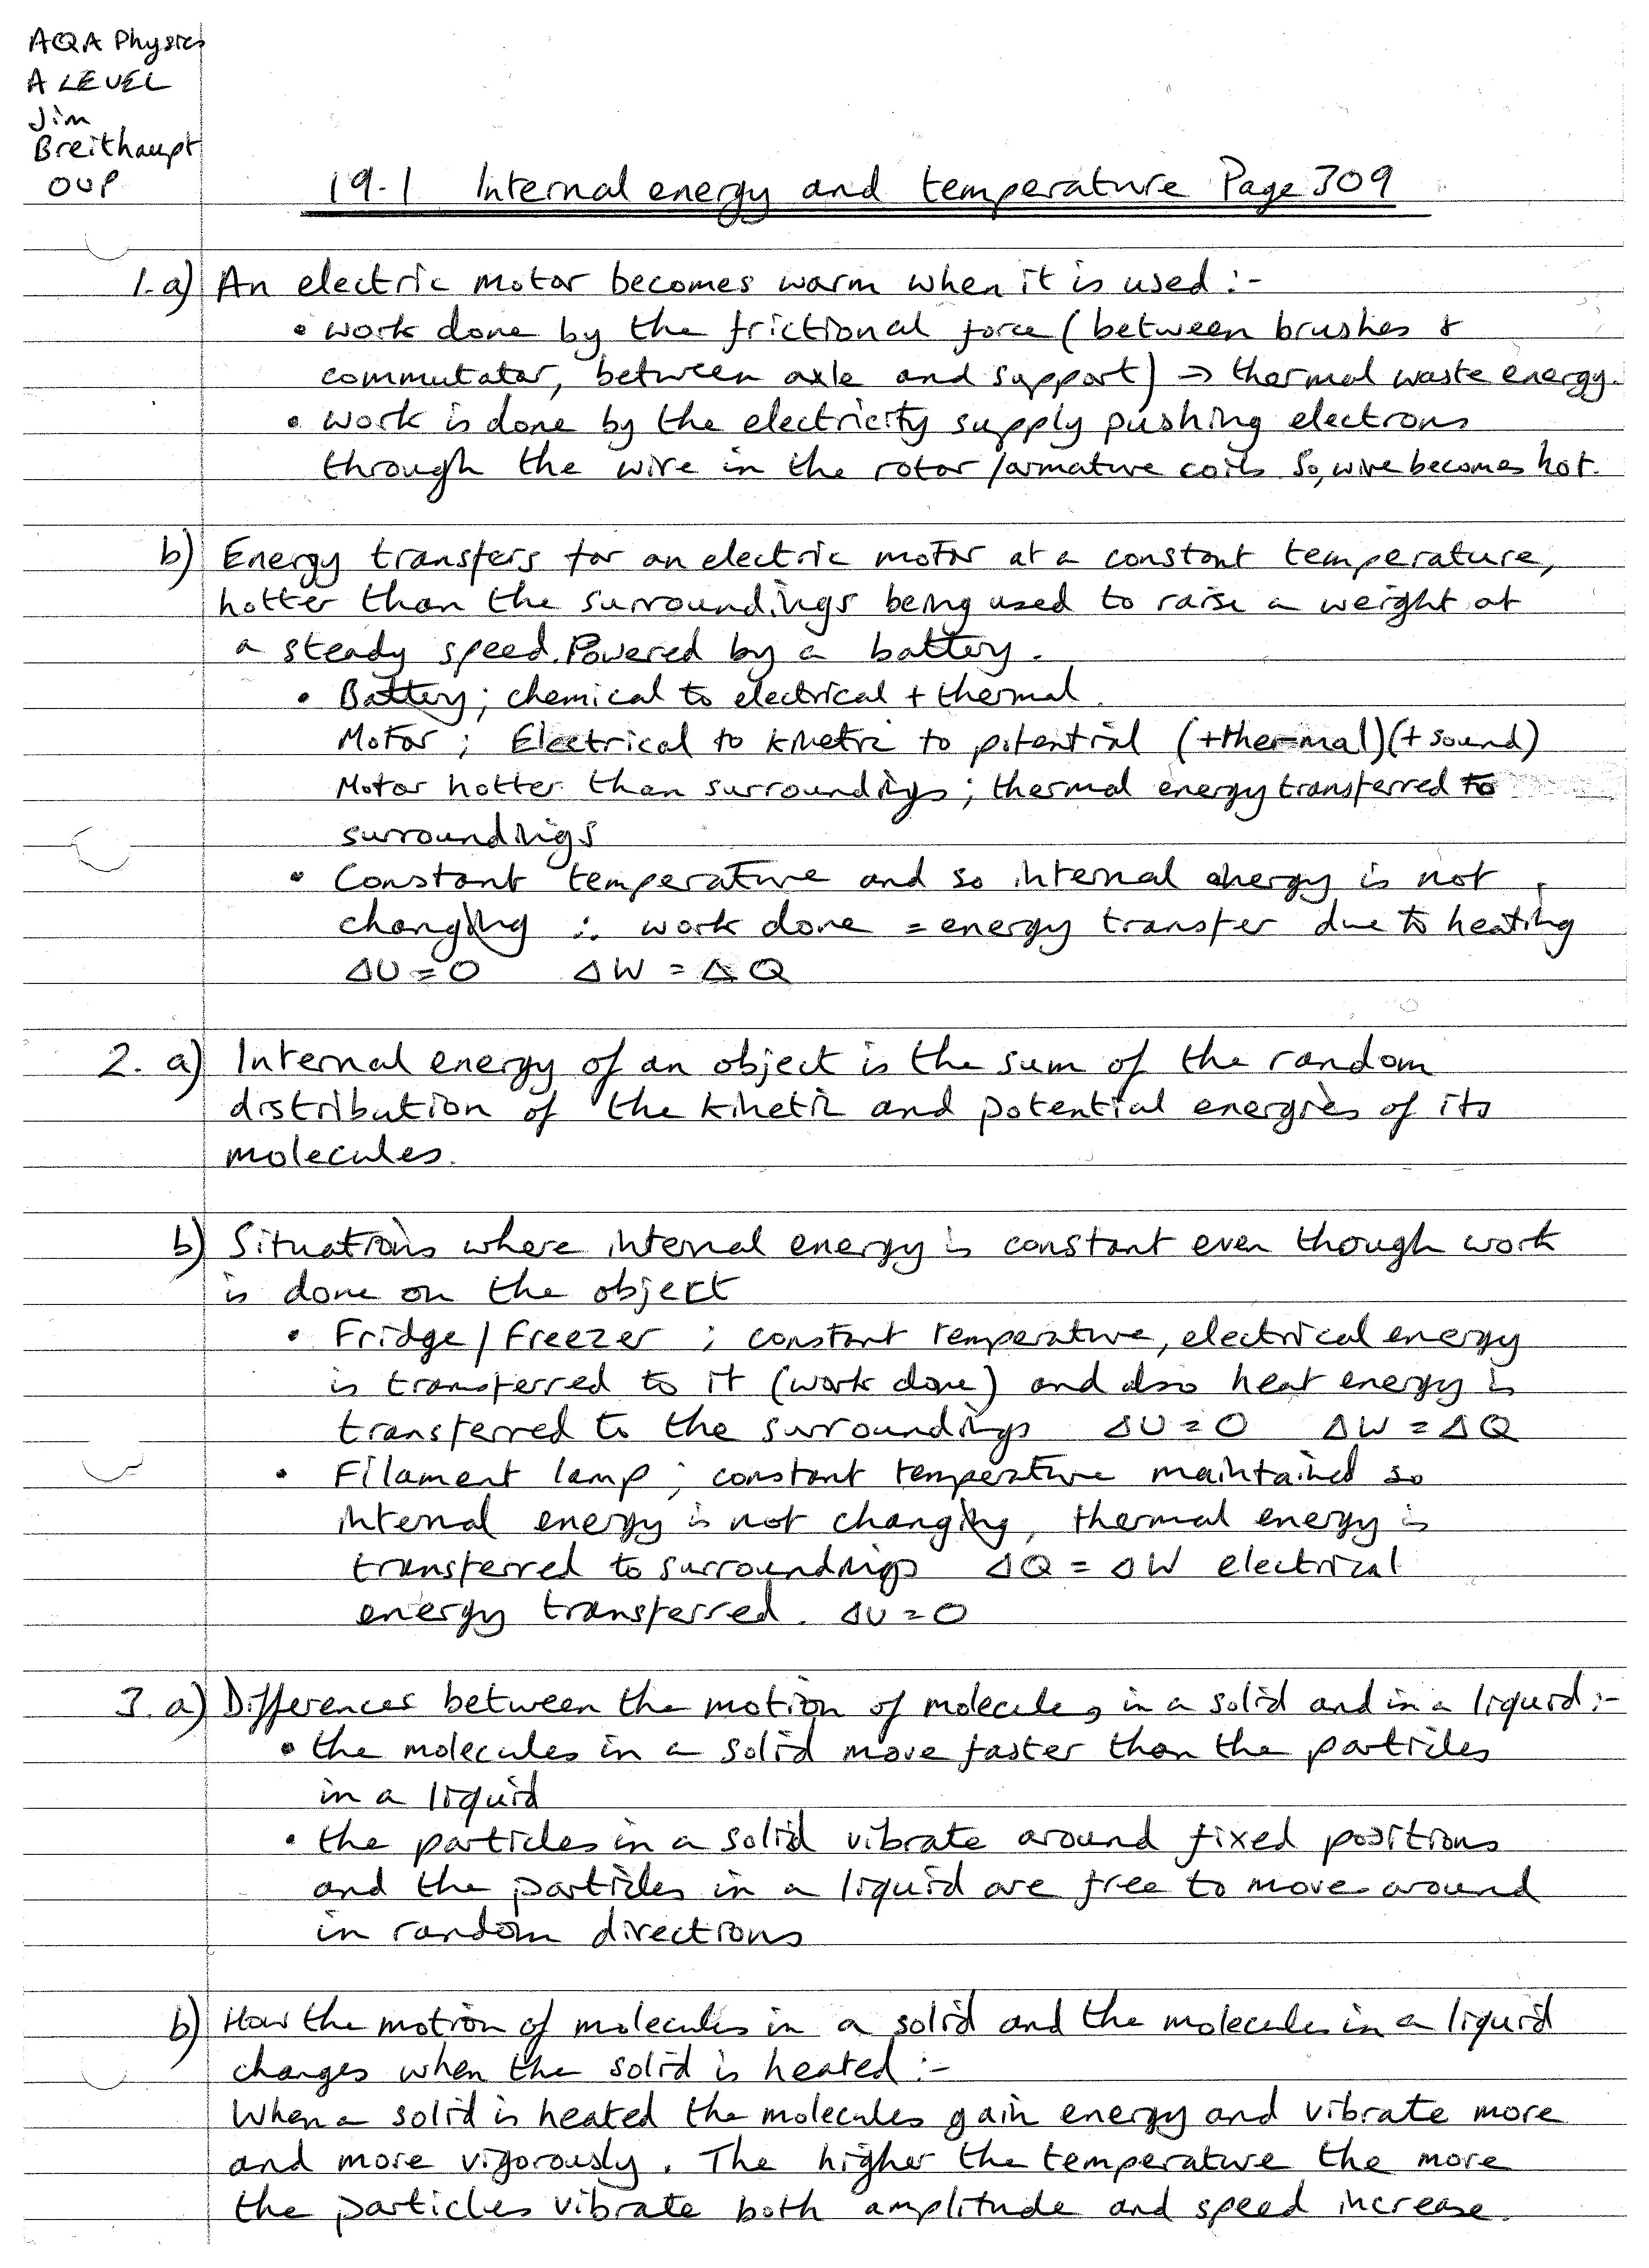 AQA Physics
A LEVEL
Jim
Breithaupt
OUP
19.1 Internal energy and temperature Page 309
1.a) An electric motor becomes warm when it is used :-
• work done by the frictional force (between brushes &
commutator, between axle and support) → thermal waste energy.
• work is done by the electricity supply pushing electrons
through the wire in the rotor/armature coils. So, wire becomes hot.
b) Energy transfers for an electric motor at a constant temperature,
hotter than the surroundings being used to raise a weight at
a steady speed. Powered by a battery.
• Battery; chemical to electrical + thermal.
Motor; Electrical to kinetic to potential (+thermal)(+sound)
Motor hotter than surroundings; thermal energy transferred to
surroundings
• Constant temperature and so internal energy is not
changing ∴ work done = energy transfer due to heating
ΔU = 0 ΔW = ΔQ
2. a) Internal energy of an object is the sum of the random
distribution of the kinetic and potential energies of its
molecules.
b) Situations where internal energy is constant even though work
is done on the object
• Fridge/Freezer; constant temperature, electrical energy
is transferred to it (work done) and also heat energy is
transferred to the surroundings ΔU = 0 ΔW = ΔQ
• Filament lamp; constant temperature maintained so
internal energy is not changing, thermal energy is
transferred to surroundings ΔQ = ΔW electrical
energy transferred. ΔU = 0
3. a) Differences between the motion of molecules in a solid and in a liquid :-
• the molecules in a solid move faster than the particles
in a liquid
• the particles in a solid vibrate around fixed positions
and the particles in a liquid are free to move around
in random directions
b) How the motion of molecules in a solid and the molecules in a liquid
changes when the solid is heated :-
When a solid is heated the molecules gain energy and vibrate more
and more vigorously. The higher the temperature the more
the particles vibrate both amplitude and speed increase.